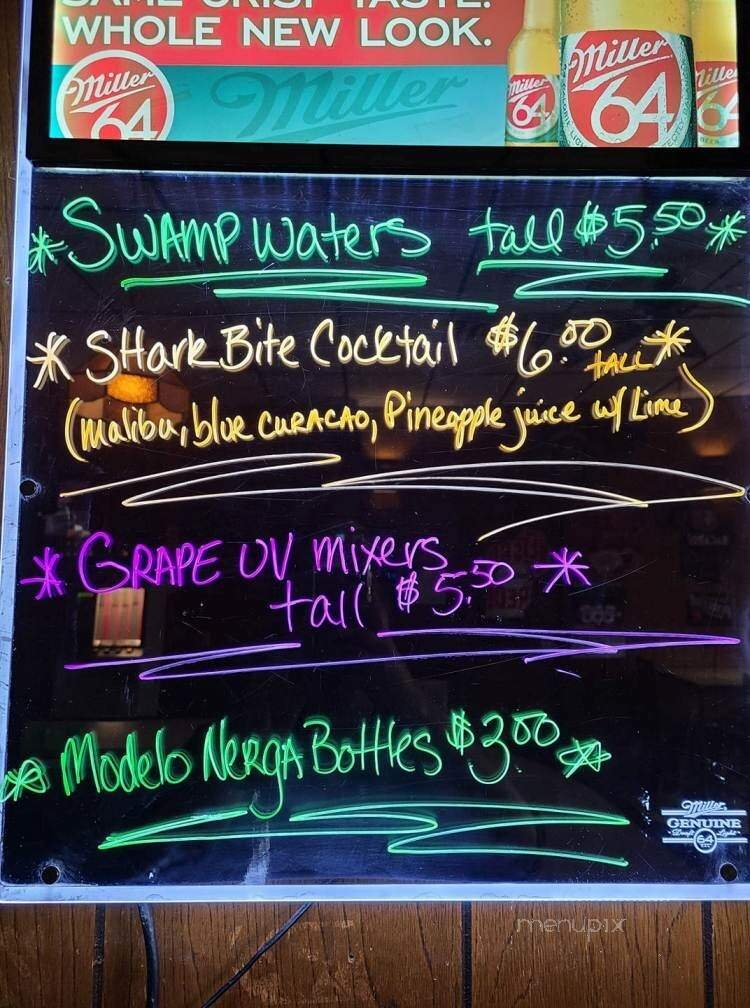 SAME CRISP TASTE.
WHOLE NEW LOOK.
Miller 64
Miller
Miller 64
Miller 64
Miller 64
* SWAMP Waters tall $5.50 *
* SHark Bite Cocktail $6.00 TALL *
(malibu, blue CURACAO, Pineapple juice w/ Lime)
* GRAPE UV mixers
tall $5.50 *
Modelo NERGA Bottles $3.00
Miller
GENUINE
Draft Light
64
menupix